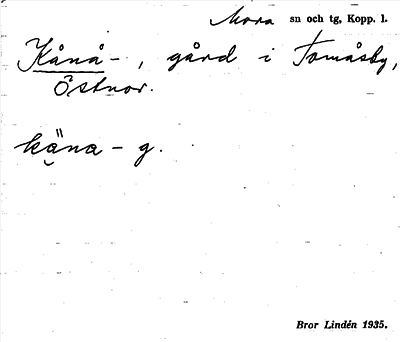 Mora sn och tg, Kopp. l.
Kånå- , gård i Tomåsby,
Östnor.
käna - g.
Bror Lindén 1935.